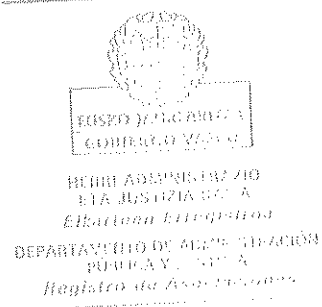 EUSKO JAURLARITZA
GOBIERNO VASCO
HERRI ADMINISTRAZIO
ETA JUSTIZIA SAILA
Elkarteen Erregistroa
DEPARTAMENTO DE ADMINISTRACIÓN
PÚBLICA Y
Registro de Asociaciones